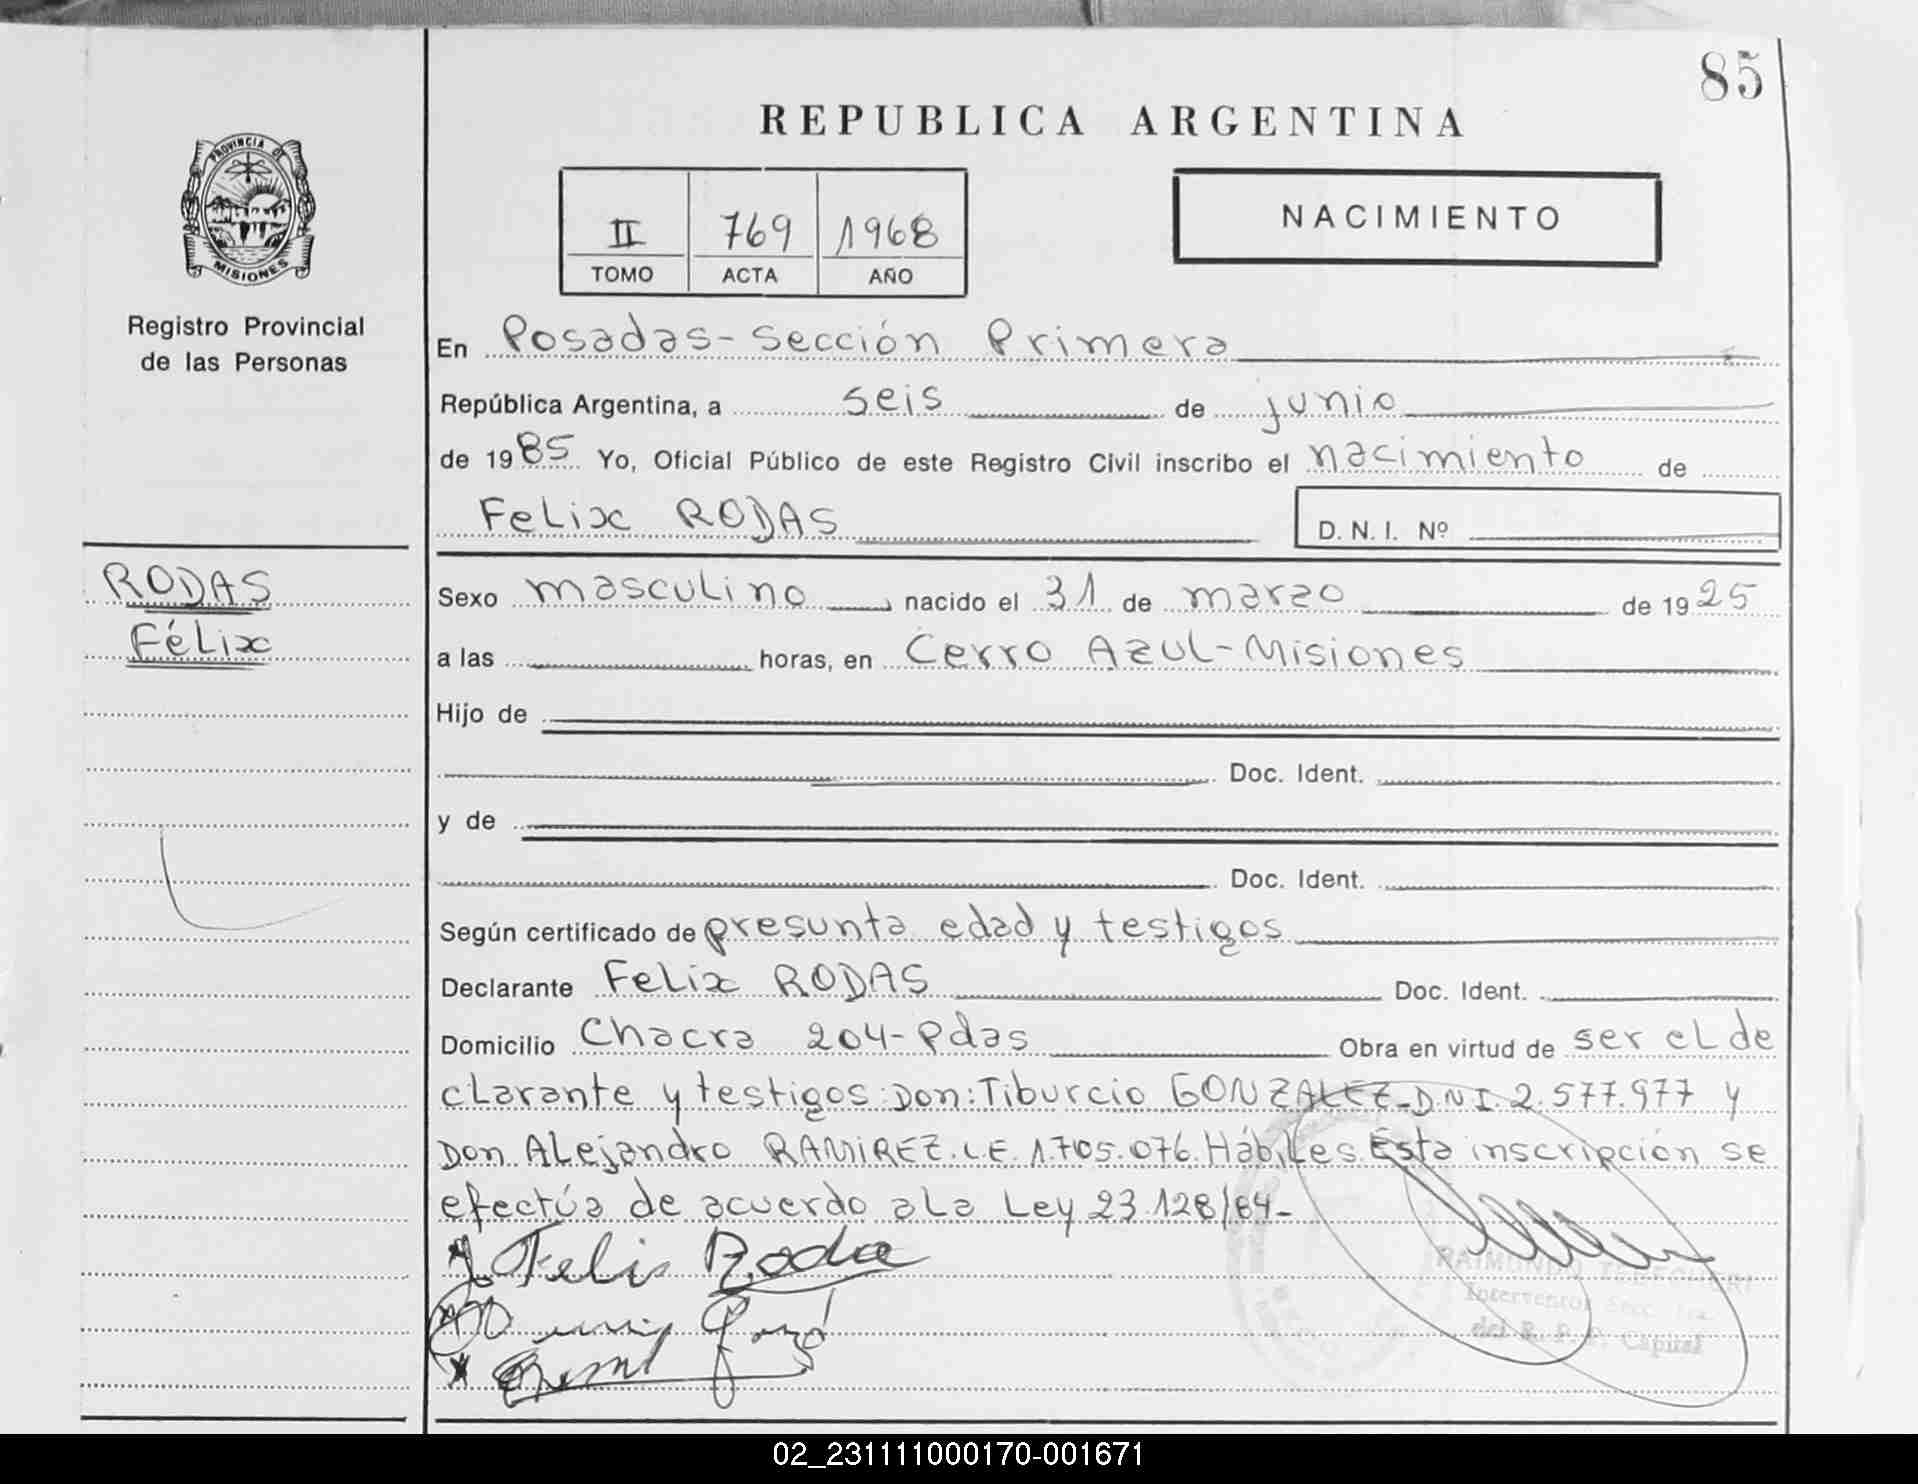 85
REPUBLICA ARGENTINA
PROVINCIA DE
MISIONES
II 769 1968
TOMO ACTA AÑO
NACIMIENTO
Registro Provincial
de las Personas
En Posadas - Sección Primera
República Argentina, a seis de junio
de 1985 Yo, Oficial Público de este Registro Civil inscribo el nacimiento de
Felix RODAS D. N. I. Nº
RODAS
Félix
Sexo masculino nacido el 31 de marzo de 1925
a las horas, en Cerro Azul - Misiones
Hijo de
Doc. Ident.
y de
Doc. Ident.
Según certificado de presunta edad y testigos
Declarante Felix RODAS Doc. Ident.
Domicilio Chacra 204 - Pdas Obra en virtud de ser el de
clarante y testigos: Don: Tiburcio GONZALEZ - D.N.I. 2.577.977 y
Don Alejandro RAMIREZ. L.E. 1.705.076. Hábiles. Esta inscripción se
efectúa de acuerdo a la Ley 23.128/84 -
Felis Roda
RAIMUNDO
Interventor Secc. 1ra.
del R. P. P. Capital
02_231111000170-001671